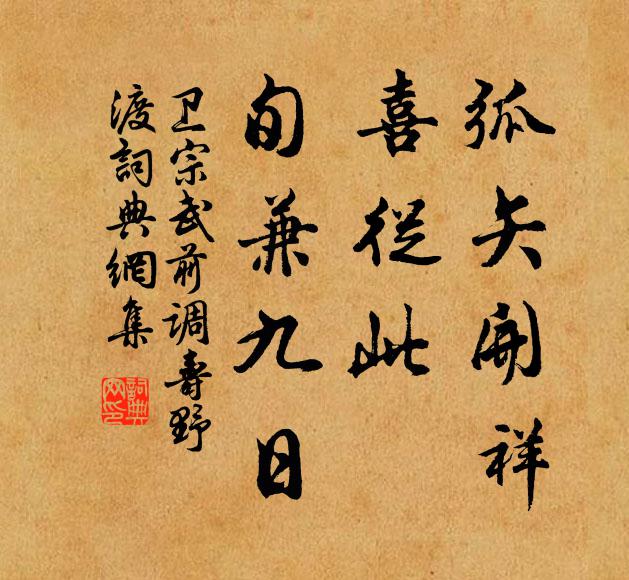 弧矢開祥
喜從此
旬兼九日
卫宗武前调寿野
渡詞典網集
詞典网印